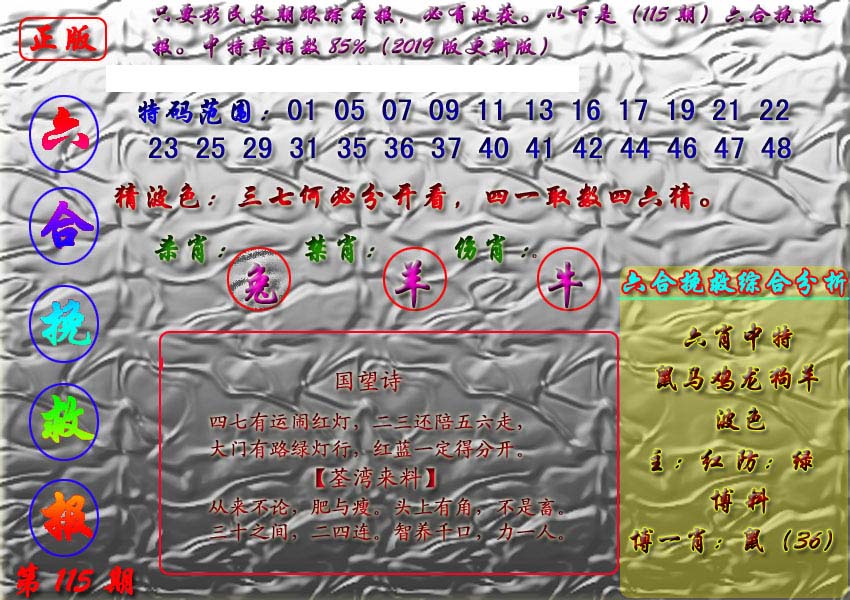 正版
只要彩民长期跟踪本报，必有收获。以下是（115期）六合挽救
报。中特率指数85%（2019版更新版）
六合挽救报
特码范围：01 05 07 09 11 13 16 17 19 21 22
23 25 29 31 35 36 37 40 41 42 44 46 47 48
猜波色：三七何必分开看，四一取数四六猜。
杀肖：兔 禁肖：羊 伤肖：。牛
国望诗
四七有运闹红灯，二三还陪五六走，
大门有路绿灯行，红蓝一定得分开。
【荃湾来料】
从来不论，肥与瘦。头上有角，不是畜。
三十之间，二四连。智养千口，力一人。
六合挽救综合分析
六肖中特
鼠马鸡龙狗羊
波色
主：红防：绿
博料
博一肖：鼠（36）
第115期